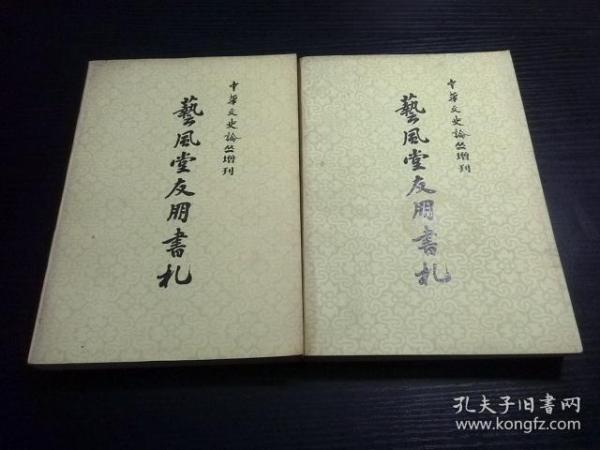 中华文史论丛增刊
藝風堂友朋書札
中华文史论丛增刊
藝風堂友朋書札
孔夫子旧书网
www.kongfz.com